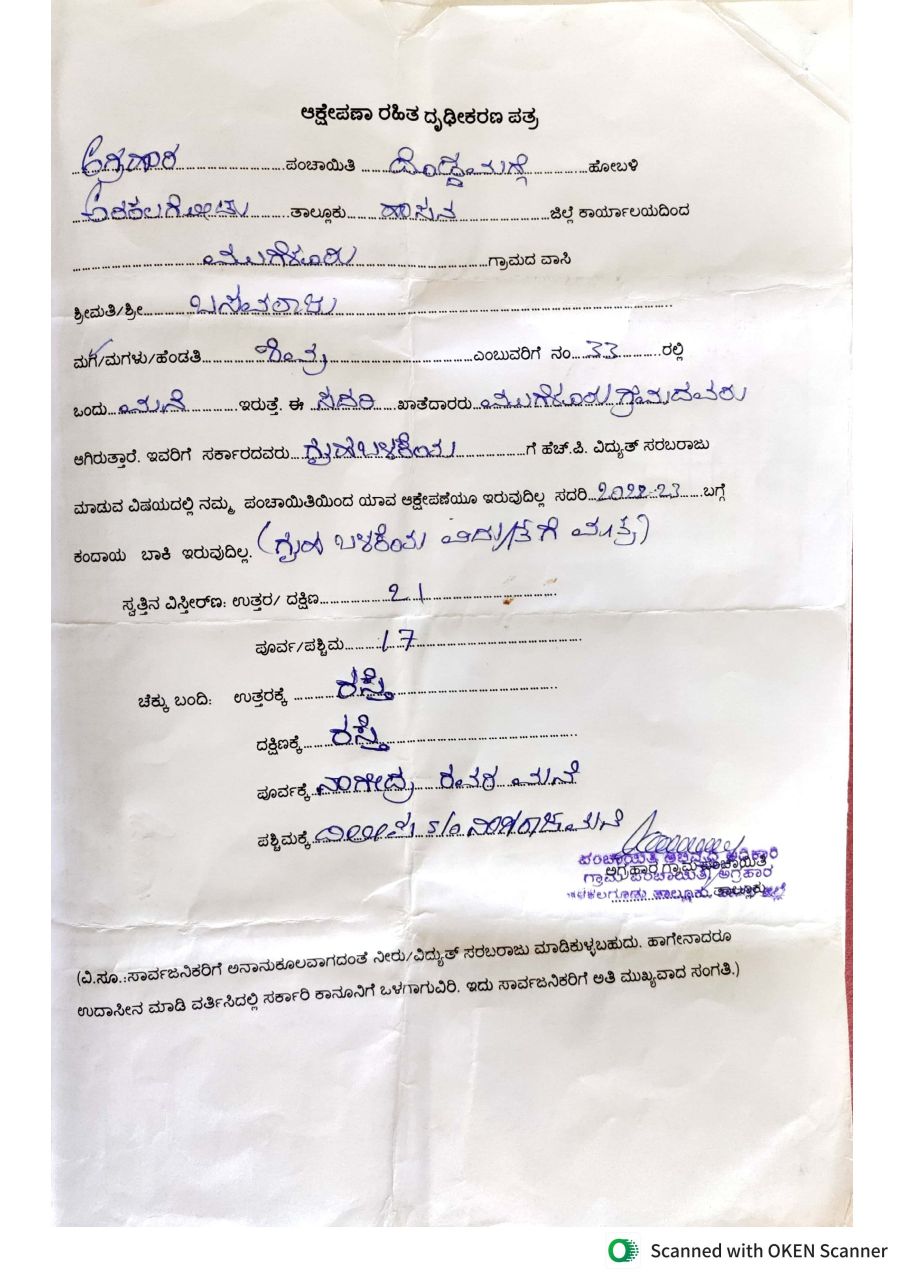 ಆಕ್ಷೇಪಣಾ ರಹಿತ ದೃಢೀಕರಣ ಪತ್ರ
ಅಗ್ರಹಾರ ಪಂಚಾಯಿತಿ ದೊಡ್ಡಮಗ್ಗೆ ಹೋಬಳಿ
ಅರಕಲಗೋಡು ತಾಲ್ಲೂಕು ಹಾಸನ ಜಿಲ್ಲೆ ಕಾರ್ಯಾಲಯದಿಂದ
ಗ್ರಾಮದ ವಾಸಿ
ಶ್ರೀಮತಿ/ಶ್ರೀ ಬಸವರಾಜು
ಮಗ/ಮಗಳು/ಹೆಂಡತಿ ಎಂಬುವರಿಗೆ ನಂ 33 ರಲ್ಲಿ
ಒಂದು ಮನೆ ಇರುತ್ತೆ. ಈ ಸದರಿ ಖಾತೆದಾರರು ಗ್ರಾಮದವರು
ಆಗಿರುತ್ತಾರೆ. ಇವರಿಗೆ ಸರ್ಕಾರದವರು ಗೃಹಬಳಕೆಯ ಗೆ ಹೆಚ್.ಪಿ. ವಿದ್ಯುತ್ ಸರಬರಾಜು
ಮಾಡುವ ವಿಷಯದಲ್ಲಿ ನಮ್ಮ ಪಂಚಾಯಿತಿಯಿಂದ ಯಾವ ಆಕ್ಷೇಪಣೆಯೂ ಇರುವುದಿಲ್ಲ ಸದರಿ 2022-23 ಬಗ್ಗೆ
ಕಂದಾಯ ಬಾಕಿ ಇರುವುದಿಲ್ಲ. (ಗೃಹ ಬಳಕೆಯ ವಿದ್ಯುತ್‌ಗೆ ಮಾತ್ರ)
ಸ್ವತ್ತಿನ ವಿಸ್ತೀರ್ಣ: ಉತ್ತರ/ ದಕ್ಷಿಣ 21
ಪೂರ್ವ/ಪಶ್ಚಿಮ 17
ಚೆಕ್ಕು ಬಂದಿ: ಉತ್ತರಕ್ಕೆ ರಸ್ತೆ
ದಕ್ಷಿಣಕ್ಕೆ ರಸ್ತೆ
ಪೂರ್ವಕ್ಕೆ ನಾಗೇಂದ್ರ ರವರ ಮನೆ
ಪಶ್ಚಿಮಕ್ಕೆ s/o ಮನೆ
ಪಂಚಾಯಿತಿ ಅಭಿವೃದ್ಧಿ ಅಧಿಕಾರಿ
ಅಗ್ರಹಾರ ಗ್ರಾಮ ಪಂಚಾಯಿತಿ
ಗ್ರಾಮ ಪಂಚಾಯಿತಿ, ಅಗ್ರಹಾರ
ತಾಲ್ಲೂಕು
(ವಿ.ಸೂ.:ಸಾರ್ವಜನಿಕರಿಗೆ ಅನಾನುಕೂಲವಾಗದಂತೆ ನೀರು/ವಿದ್ಯುತ್ ಸರಬರಾಜು ಮಾಡಿಕುಳ್ಳಬಹುದು. ಹಾಗೇನಾದರೂ
ಉದಾಸೀನ ಮಾಡಿ ವರ್ತಿಸಿದಲ್ಲಿ ಸರ್ಕಾರಿ ಕಾನೂನಿಗೆ ಒಳಗಾಗುವಿರಿ. ಇದು ಸಾರ್ವಜನಿಕರಿಗೆ ಅತಿ ಮುಖ್ಯವಾದ ಸಂಗತಿ.)
Scanned with OKEN Scanner